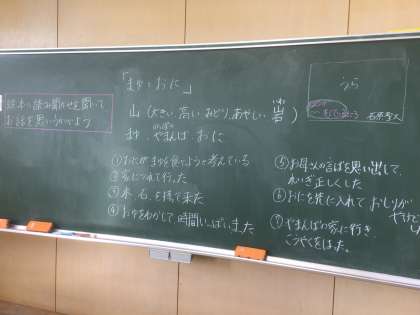 絵本の読み聞かせを聞いて
お話を思いうかべよう
「ますとおに」
山(大きい、高い、みどり、あやしい、岩)
ます、やまんば、おに
①おにがますを食べようと考えている
②家につれて行った
③木、石、を持って来た
④おゆをわかして時間いっぱい、まった
うら
⑤お母さんの言ばを思い出して、
れいぎ正しくした
⑥おにを先に入れておしりが
やけど
⑦やまんばの家に行き、
こうやくをはった。